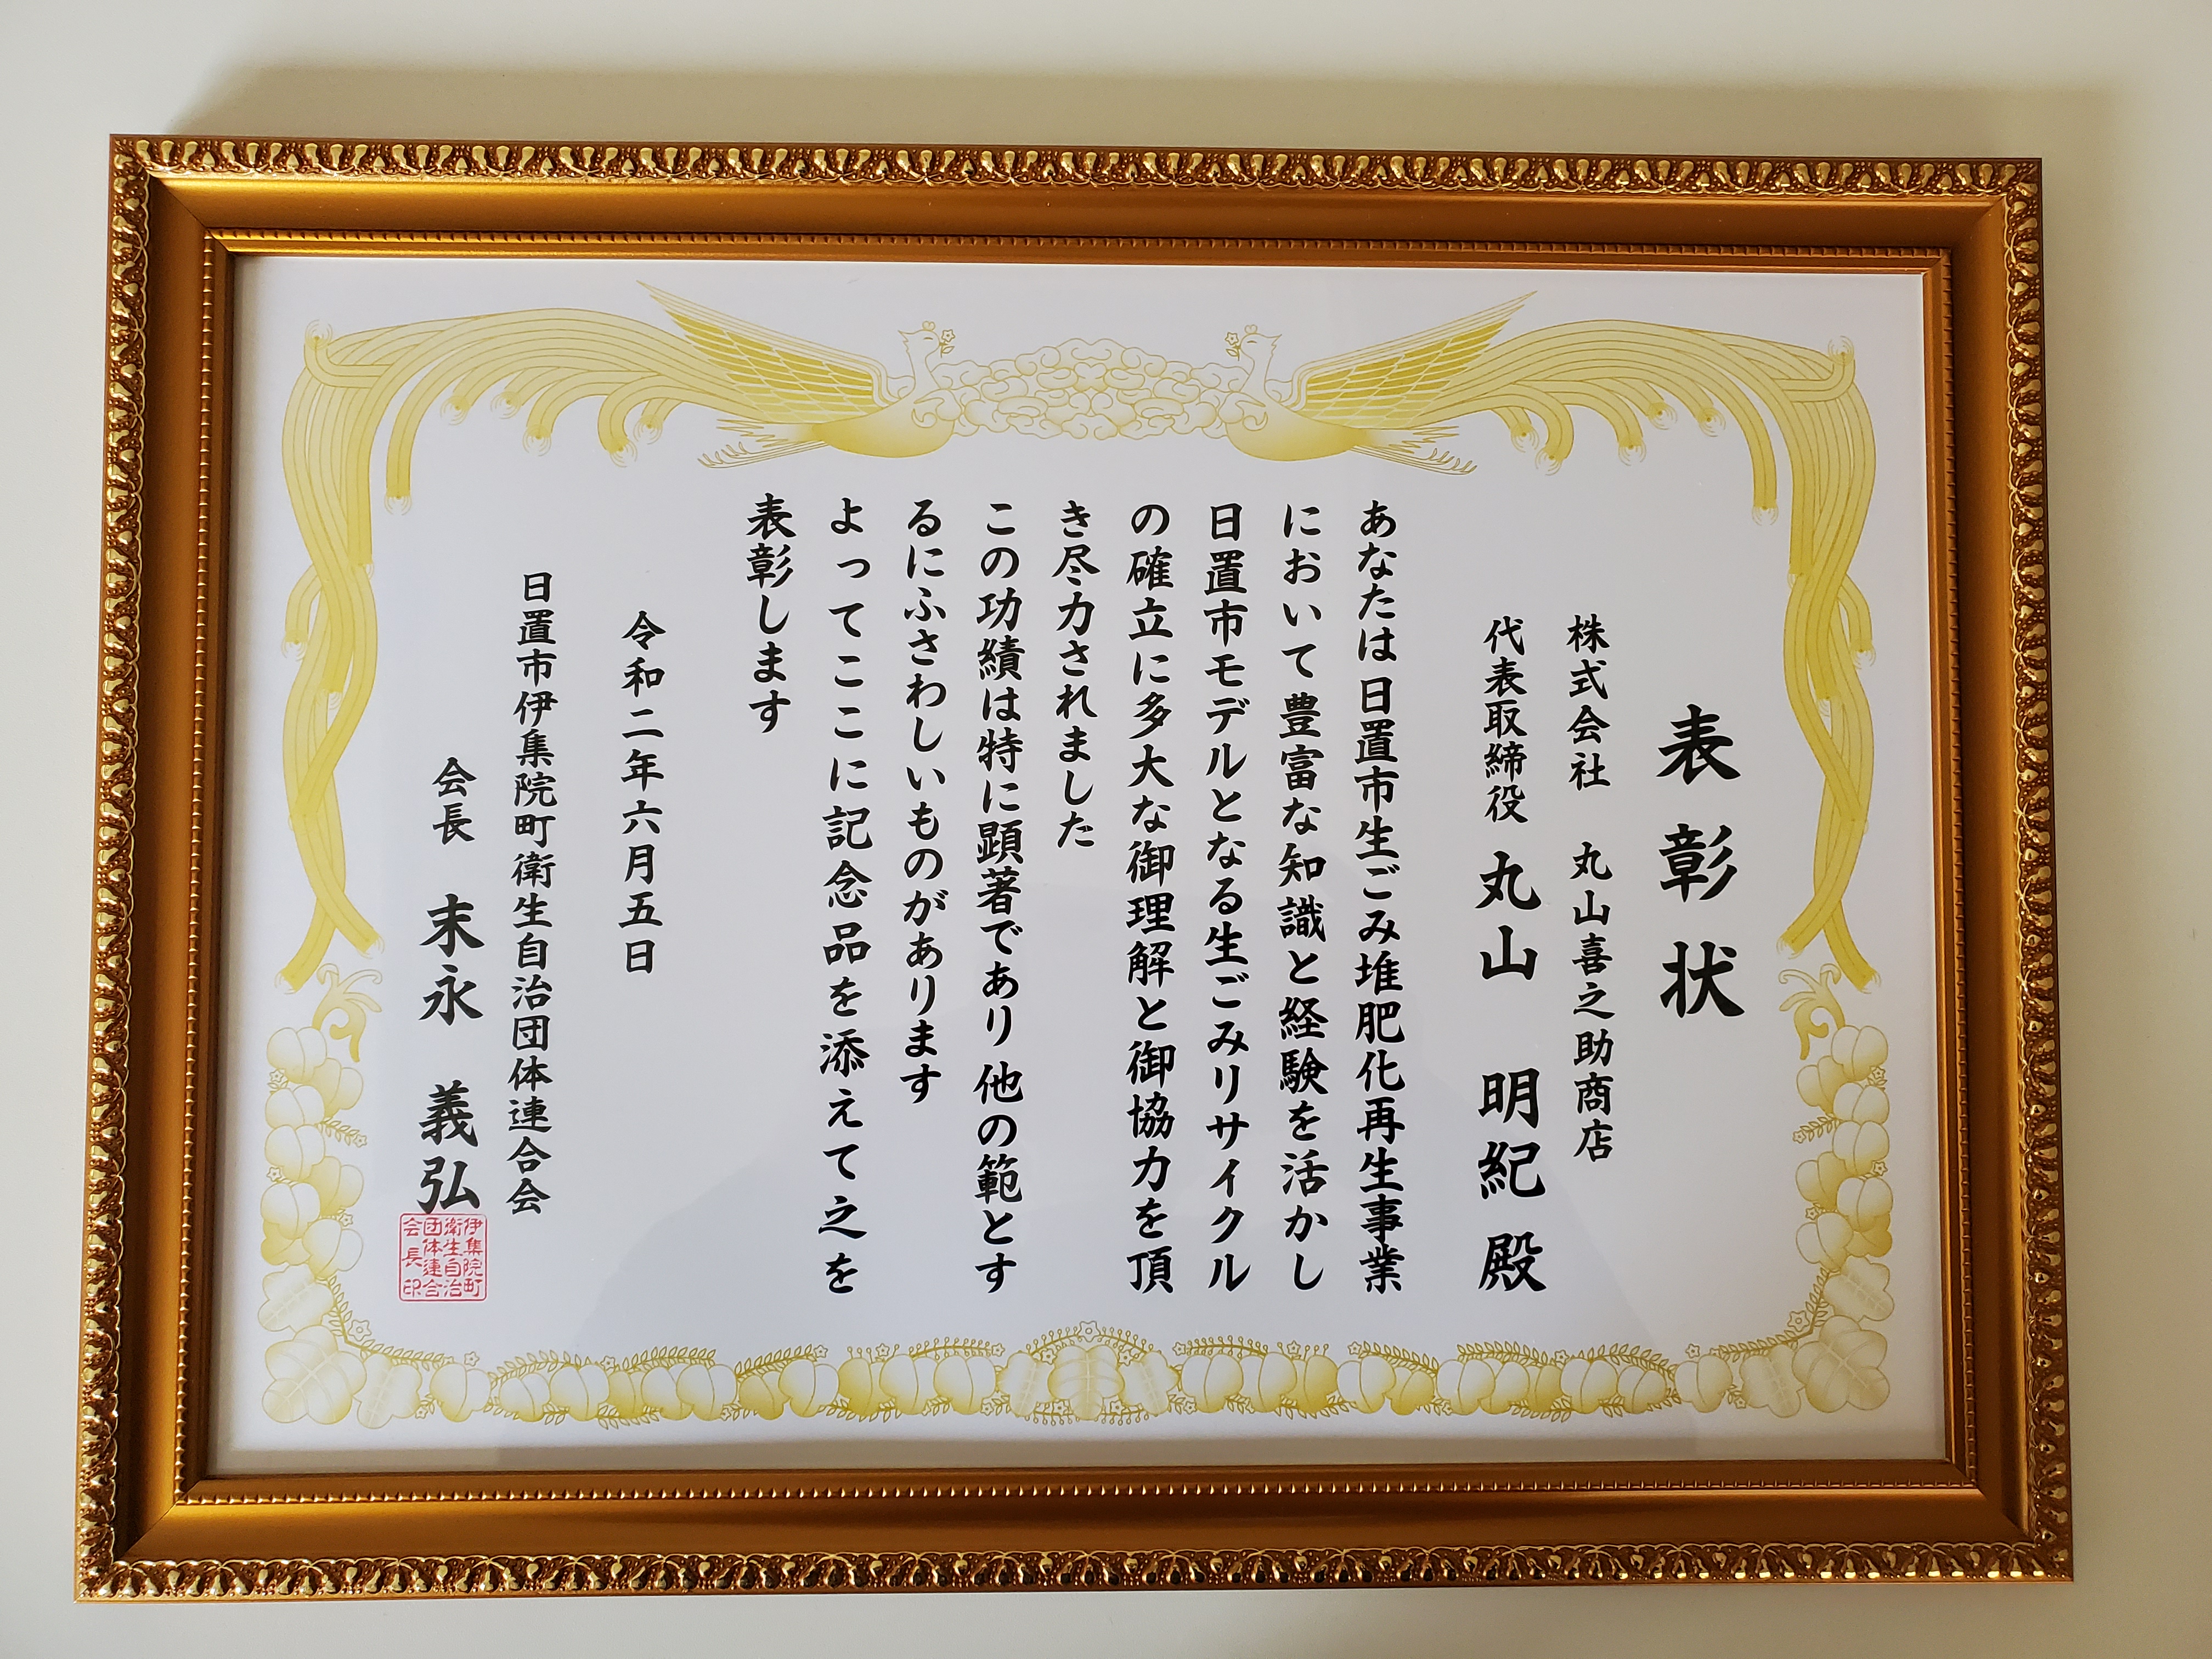 表彰状
株式会社 丸山喜之助商店
代表取締役 丸山 明紀 殿
あなたは日置市生ごみ堆肥化再生事業
において豊富な知識と経験を活かし
日置市モデルとなる生ごみリサイクル
の確立に多大な御理解と御協力を頂
き尽力されました
この功績は特に顕著であり他の範とす
るにふさわしいものがあります
よってここに記念品を添えて之を
表彰します
令和二年六月五日
日置市伊集院町衛生自治団体連合会
会長 末永 義弘
伊集院町
衛生自治
団体連合
会長印